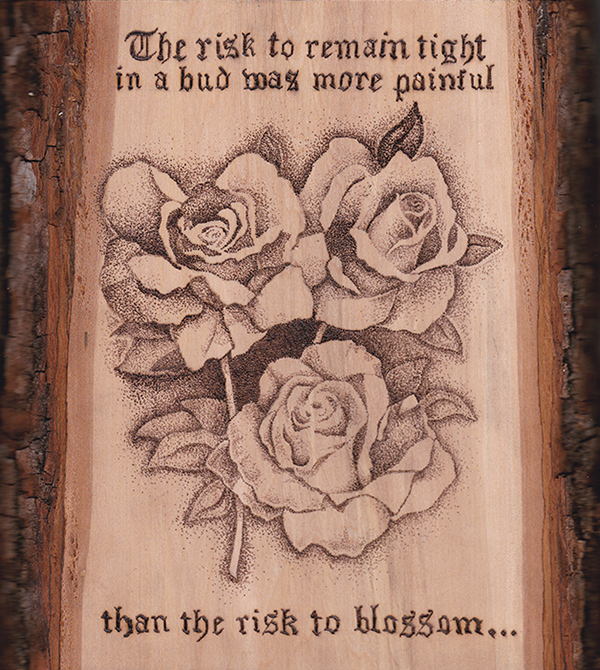 The risk to remain tight
in a bud was more painful
than the risk to blossom...